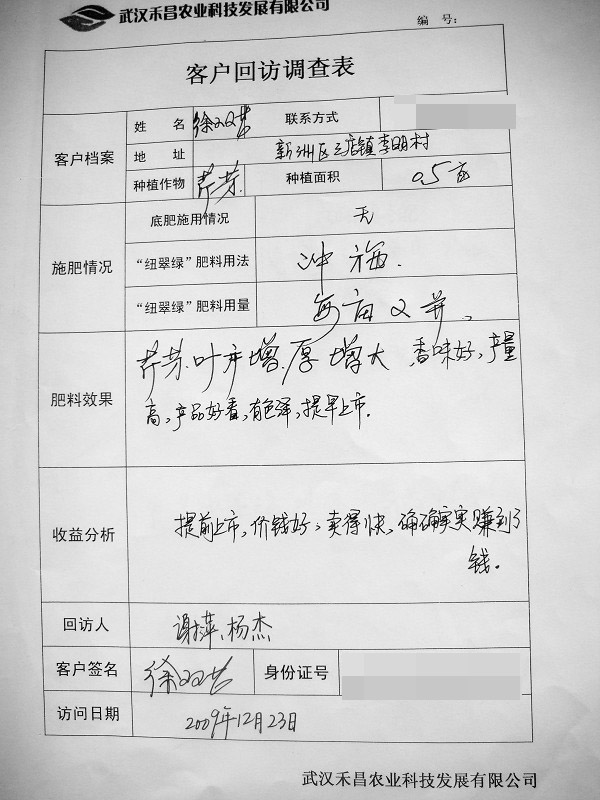 武汉禾昌农业科技发展有限公司
编 号:
客户回访调查表
客户档案
姓 名 徐双 联系方式
地 址 新洲区三店镇李明村
种植作物 芹菜 种植面积 0.5亩
施肥情况
底肥施用情况 无
“纽翠绿”肥料用法 冲施.
“纽翠绿”肥料用量 每亩2瓶、
肥料效果
芹芽.叶片增厚增大、香味好、产量
高、产品好看,有色泽,提早上市.
收益分析
提前上市,价钱好,卖得快,确确实实赚到了
钱。
回访人 谢萍、杨杰
客户签名 徐双 身份证号
访问日期 2009年12月23日
武汉禾昌农业科技发展有限公司